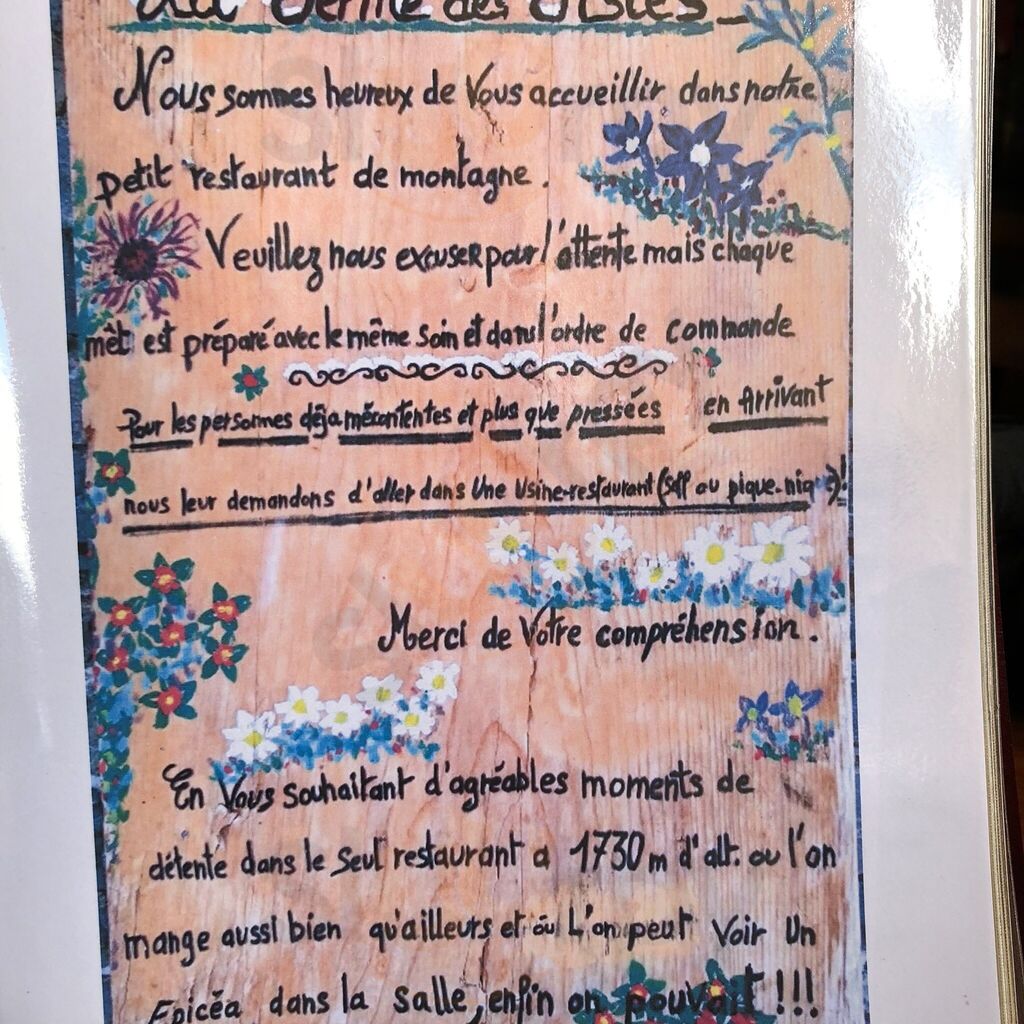 La des
Nous sommes heureux de Vous accueillir dans notre
petit restaurant de montagne.
Veuillez nous excuser pour l'attente mais chaque
mèt est préparé avec le même soin et dans l'ordre de commande
Pour les personnes déja mécontentes et plus que pressées en Arrivant
nous leur demandons d'aller dans Une Usine-restaurant (Self ou pique-nique)!
Merci de Votre compréhension.
En Vous souhaitant d'agréables moments de
détente dans le seul restaurant a 1730 m d'alt. ou l'on
mange aussi bien qu'ailleurs et où L'on peut Voir Un
Epicéa dans la salle, enfin on pouvait !!!